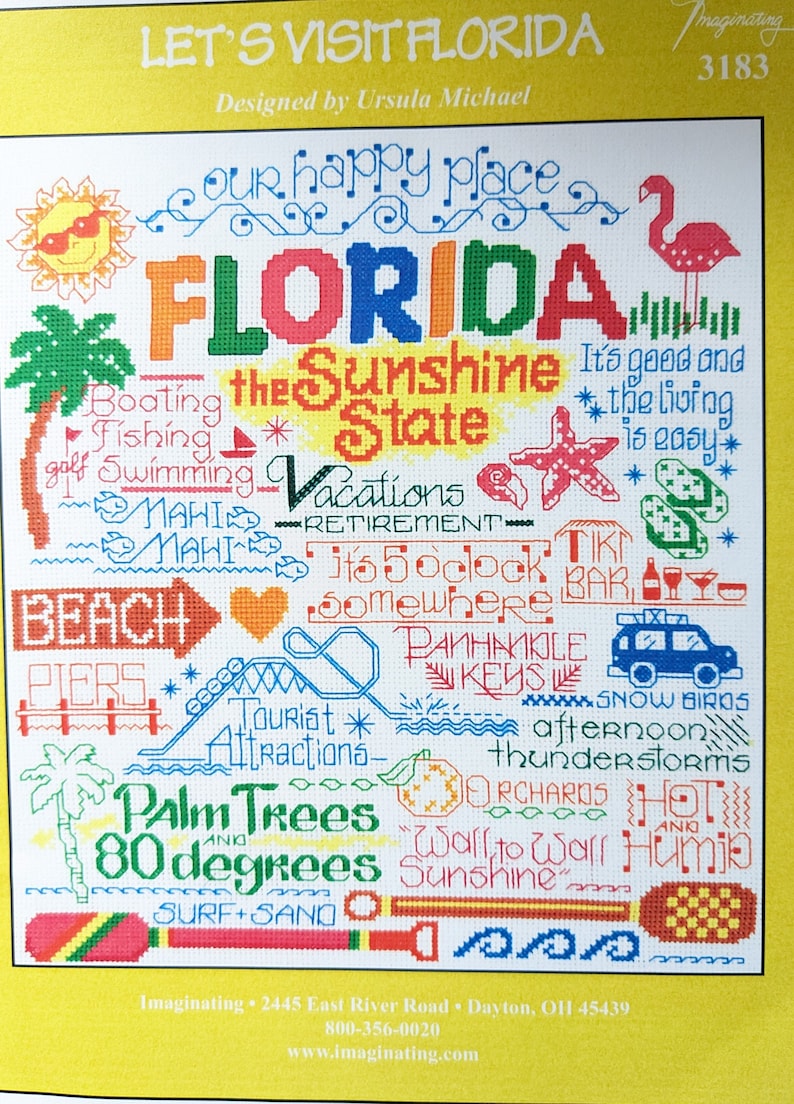 Imaginating
LET'S VISIT FLORIDA
3183
Designed by Ursula Michael
our happy place
FLORIDA
the Sunshine
State
It's good and
the living
is easy
Boating
Fishing
golf Swimming
Vacations
RETIREMENT
MAHI
MAHI
it's 5 o'clock
somewhere
TIKI
BAR
BEACH
PANHANDLE
KEYS
SNOW BIRDS
PIERS
Tourist
Attractions
afternoon
thunderstorms
Palm Trees
AND
80 degrees
ORCHARDS
HOT
AND
HUMID
"Wall to Wall
Sunshine"
SURF + SAND
Imaginating • 2445 East River Road • Dayton, OH 45439
800-356-0020
www.imaginating.com